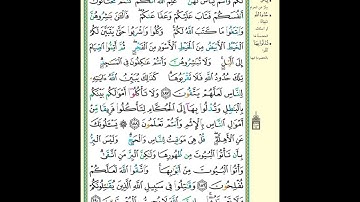 لَكُمْ وَأَنتُمْ لِبَاسٌ لَّهُنَّ عَلِمَ ٱللَّهُ أَنَّكُمْ كُنتُمْ تَخْتَانُونَ
أَنفُسَكُمْ فَتَابَ عَلَيْكُمْ وَعَفَا عَنكُمْ فَٱلْـَٰٔنَ بَـٰشِرُوهُنَّ
وَٱبْتَغُوا۟ مَا كَتَبَ ٱللَّهُ لَكُمْ وَكُلُوا۟ وَٱشْرَبُوا۟ حَتَّىٰ يَتَبَيَّنَ لَكُمُ
ٱلْخَيْطُ ٱلْأَبْيَضُ مِنَ ٱلْخَيْطِ ٱلْأَسْوَدِ مِنَ ٱلْفَجْرِ ثُمَّ أَتِمُّوا۟ ٱلصِّيَامَ
إِلَى ٱلَّيْلِ وَلَا تُبَـٰشِرُوهُنَّ وَأَنتُمْ عَـٰكِفُونَ فِى ٱلْمَسَـٰجِدِ
تِلْكَ حُدُودُ ٱللَّهِ فَلَا تَقْرَبُوهَا كَذَٰلِكَ يُبَيِّنُ ٱللَّهُ ءَايَـٰتِهِۦ
لِلنَّاسِ لَعَلَّهُمْ يَتَّقُونَ ١٨٧ وَلَا تَأْكُلُوٓا۟ أَمْوَٰلَكُم بَيْنَكُم
بِٱلْبَـٰطِلِ وَتُدْلُوا۟ بِهَآ إِلَى ٱلْحُكَّامِ لِتَأْكُلُوا۟ فَرِيقًا مِّنْ
أَمْوَٰلِ ٱلنَّاسِ بِٱلْإِثْمِ وَأَنتُمْ تَعْلَمُونَ ١٨٨ يَسْـَٔلُونَكَ
عَنِ ٱلْأَهِلَّةِ قُلْ هِىَ مَوَٰقِيتُ لِلنَّاسِ وَٱلْحَجِّ وَلَيْسَ ٱلْبِرُّ
بِأَن تَأْتُوا۟ ٱلْبُيُوتَ مِن ظُهُورِهَا وَلَـٰكِنَّ ٱلْبِرَّ مَنِ ٱتَّقَىٰ
وَأْتُوا۟ ٱلْبُيُوتَ مِنْ أَبْوَٰبِهَا وَٱتَّقُوا۟ ٱللَّهَ لَعَلَّكُمْ
تُفْلِحُونَ ١٨٩ وَقَـٰتِلُوا۟ فِى سَبِيلِ ٱللَّهِ ٱلَّذِينَ يُقَـٰتِلُونَكُمْ